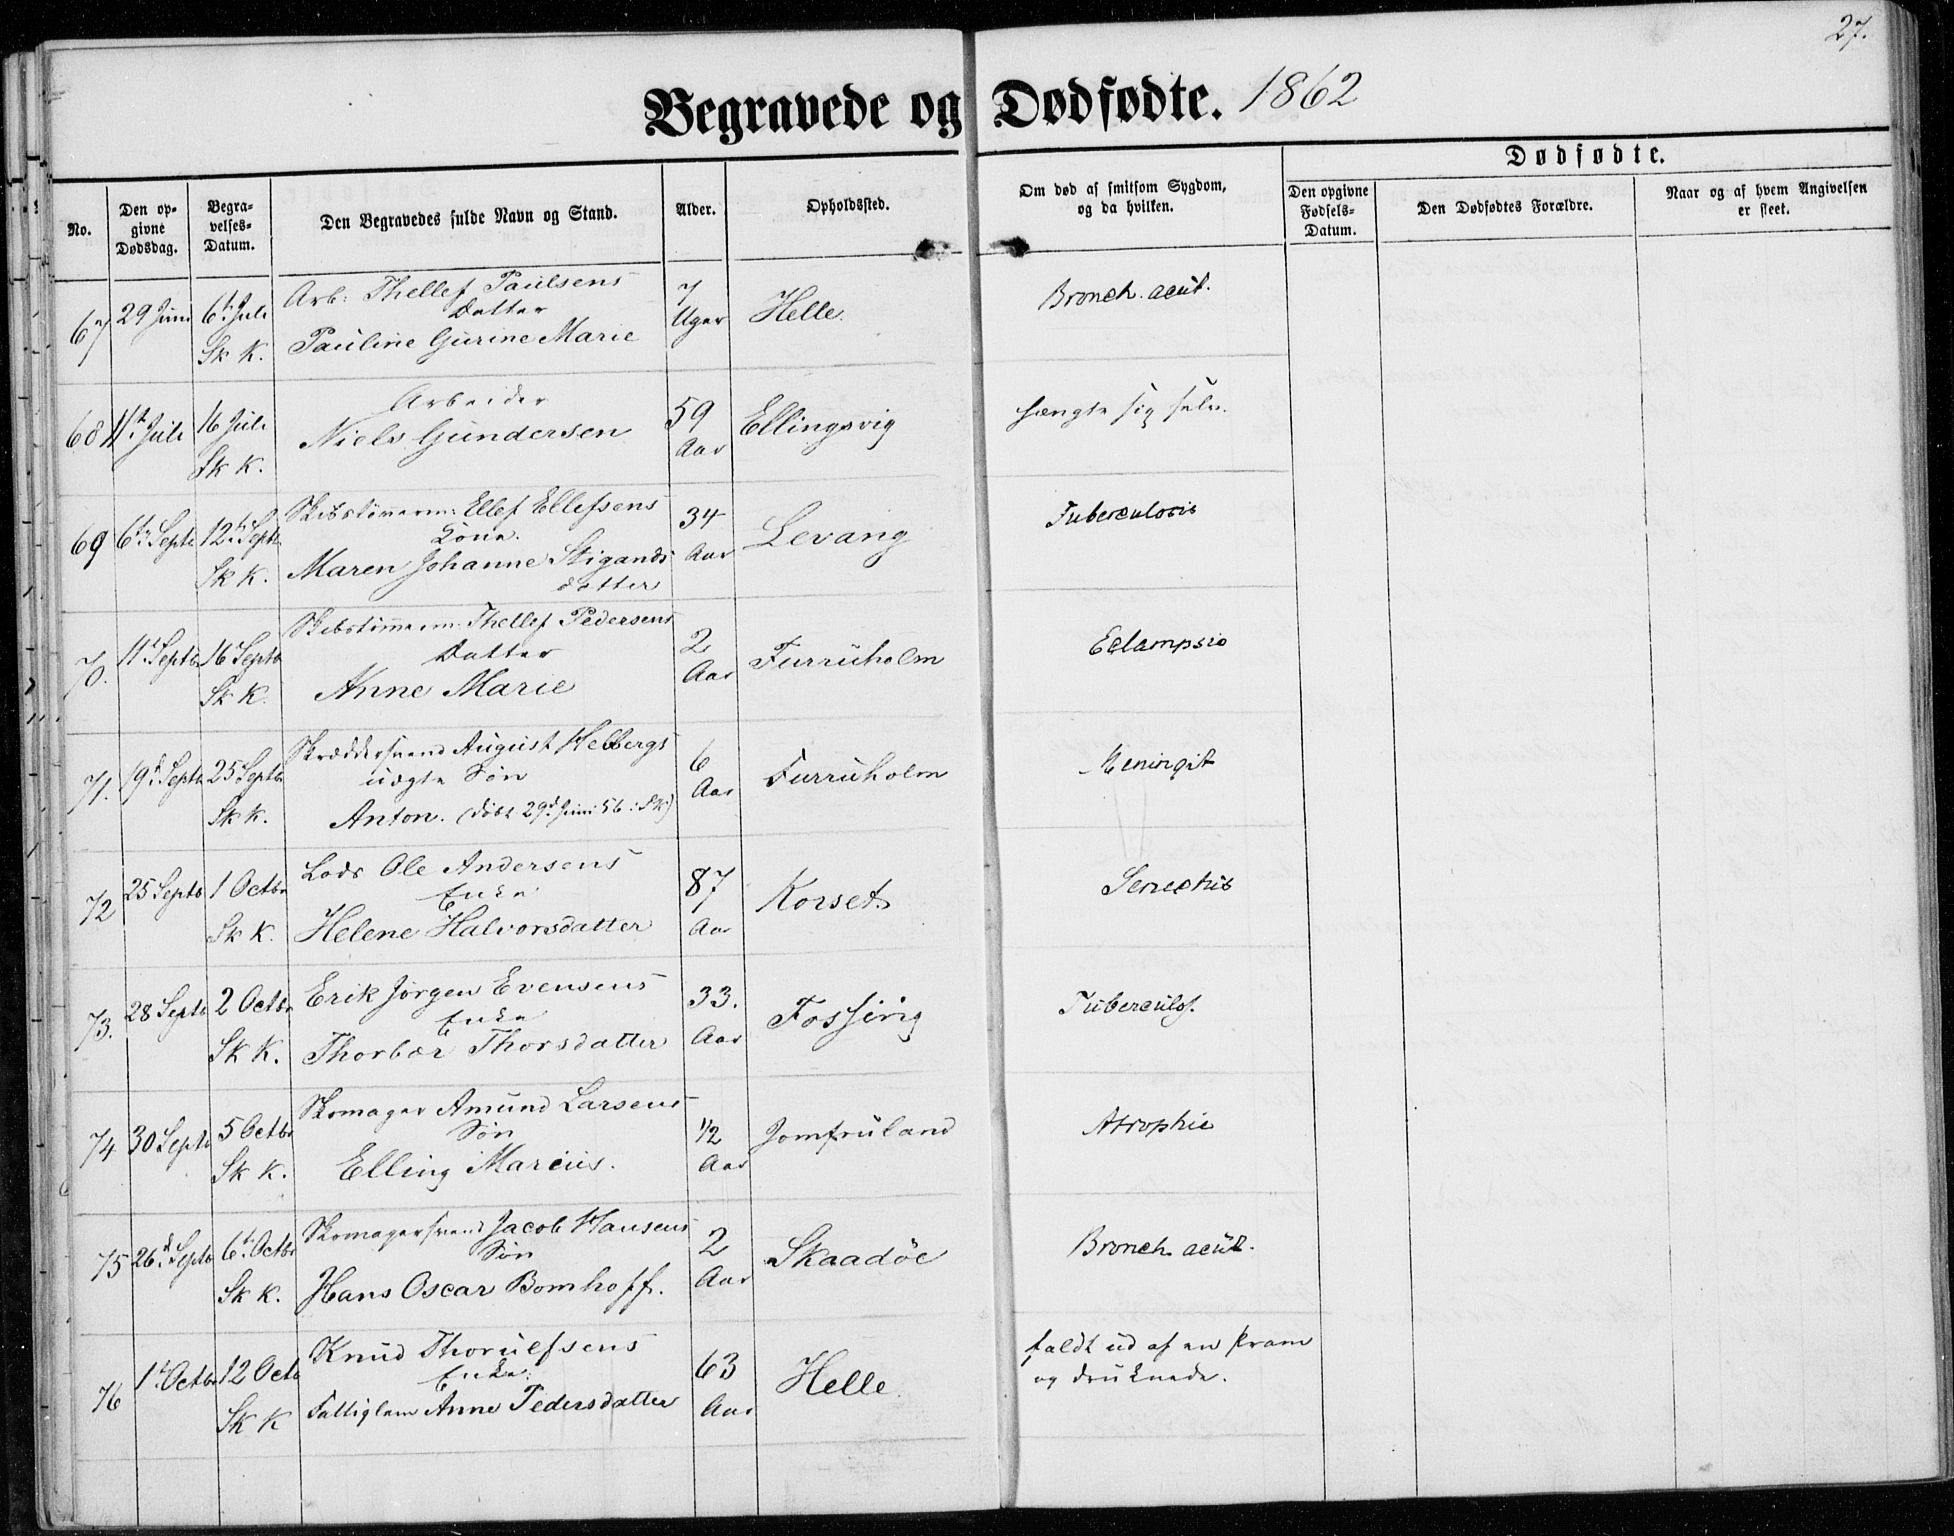 27.
Begravede og Dødfødte. 1862
No.
Den opgivne Dødsdag.
Begravelses-Datum.
Den Begravedes fulde Navn og Stand.
Alder.
Opholdssted.
Om død af smitsom Sygdom, og da hvilken.
Dødfødte.
Den opgivne Fødsels-Datum.
Den Dødfødtes Forældre.
Naar og af hvem Angivelsen er skeet.
67 29 Juni 6te Juli Arb: Thellef Paulsens 7 Helle. Bronch. acut.
Datter Uger
Sk K. Pauline Gurine Marie
68 11te Juli 16 Juli Arbeider 59 Ellingsvig hængte sig selv.
Niels Gundersen Aar
Sk K.
69 6te Septr 12te Septr Skibstømmerm: Ellef Ellefsens 34 Levang Tuberculosis
Kone.
Sk K. Maren Johanne Stigands Aar
datter
70. 11te Septbr 16 Septb Skibstømmerm: Thellef Pedersens 2 Furruholm Eclampsie
Datter
Sk K. Anne Marie Aar
71. 19de Septb 25 Septbr Skræddersvend August Helbergs 6 Furruholm Meningit
uægte Søn
Sk K. Anton. (døbt 29de Juni 56: SK) Aar
72 25 Septb 1 Octbr Lods Ole Andersens 87 Korset Senectus
Enke
Sk K. Helene Halvorsdatter Aar
73. 28 Septb 2 Octbr Erik Jørgen Evensens 33. Fossing Tuberculos.
Enke
Sk K. Thorbør Thorsdatter Aar
74 30 Septb 5 Octbr Skomager Amund Larsens 1/2 Jomfruland Atrophie
Søn
Sk K. Elling Marcius. Aar
75 26de Septb 6te Octbr Skomagersvend Jacob Hansens 2 Skaadøe Bronch acut.
Søn
Sk K. Hans Oscar Bomhoff. Aar
76 1te Octbr 12 Octb Knud Thorulfsens 63 Helle faldt ud af en Pram
Enke: og druknede.
Sk K Fattiglem Anne Pedersdatter Aar